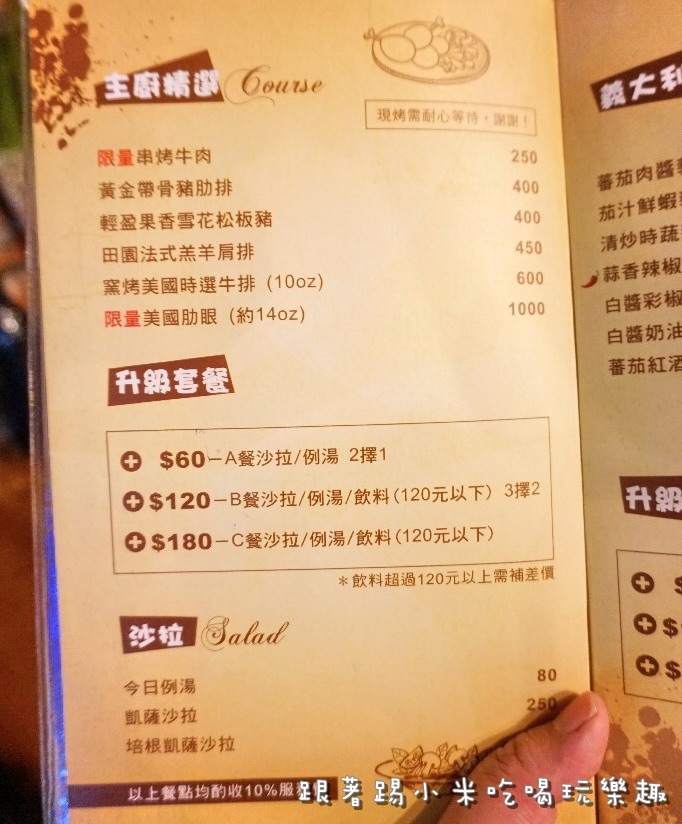 主廚精選 Course
現烤需耐心等待，謝謝！
限量串烤牛肉 250
黃金帶骨豬肋排 400
輕盈果香雪花松板豬 400
田園法式羔羊肩排 450
窯烤美國時選牛排 (10oz) 600
限量美國肋眼 (約14oz) 1000
升級套餐
+ $60－A餐沙拉/例湯 2擇1
+ $120－B餐沙拉/例湯/飲料(120元以下) 3擇2
+ $180－C餐沙拉/例湯/飲料(120元以下)
＊飲料超過120元以上需補差價
沙拉 Salad
今日例湯 80
凱薩沙拉 250
培根凱薩沙拉
以上餐點均酌收10%服
義大利
蕃茄肉醬
茄汁鮮蝦
清炒時蔬
蒜香辣椒
白醬彩椒
白醬奶油
蕃茄紅酒
升級
+ $
+ $
+ $
跟著踢小米吃喝玩樂趣